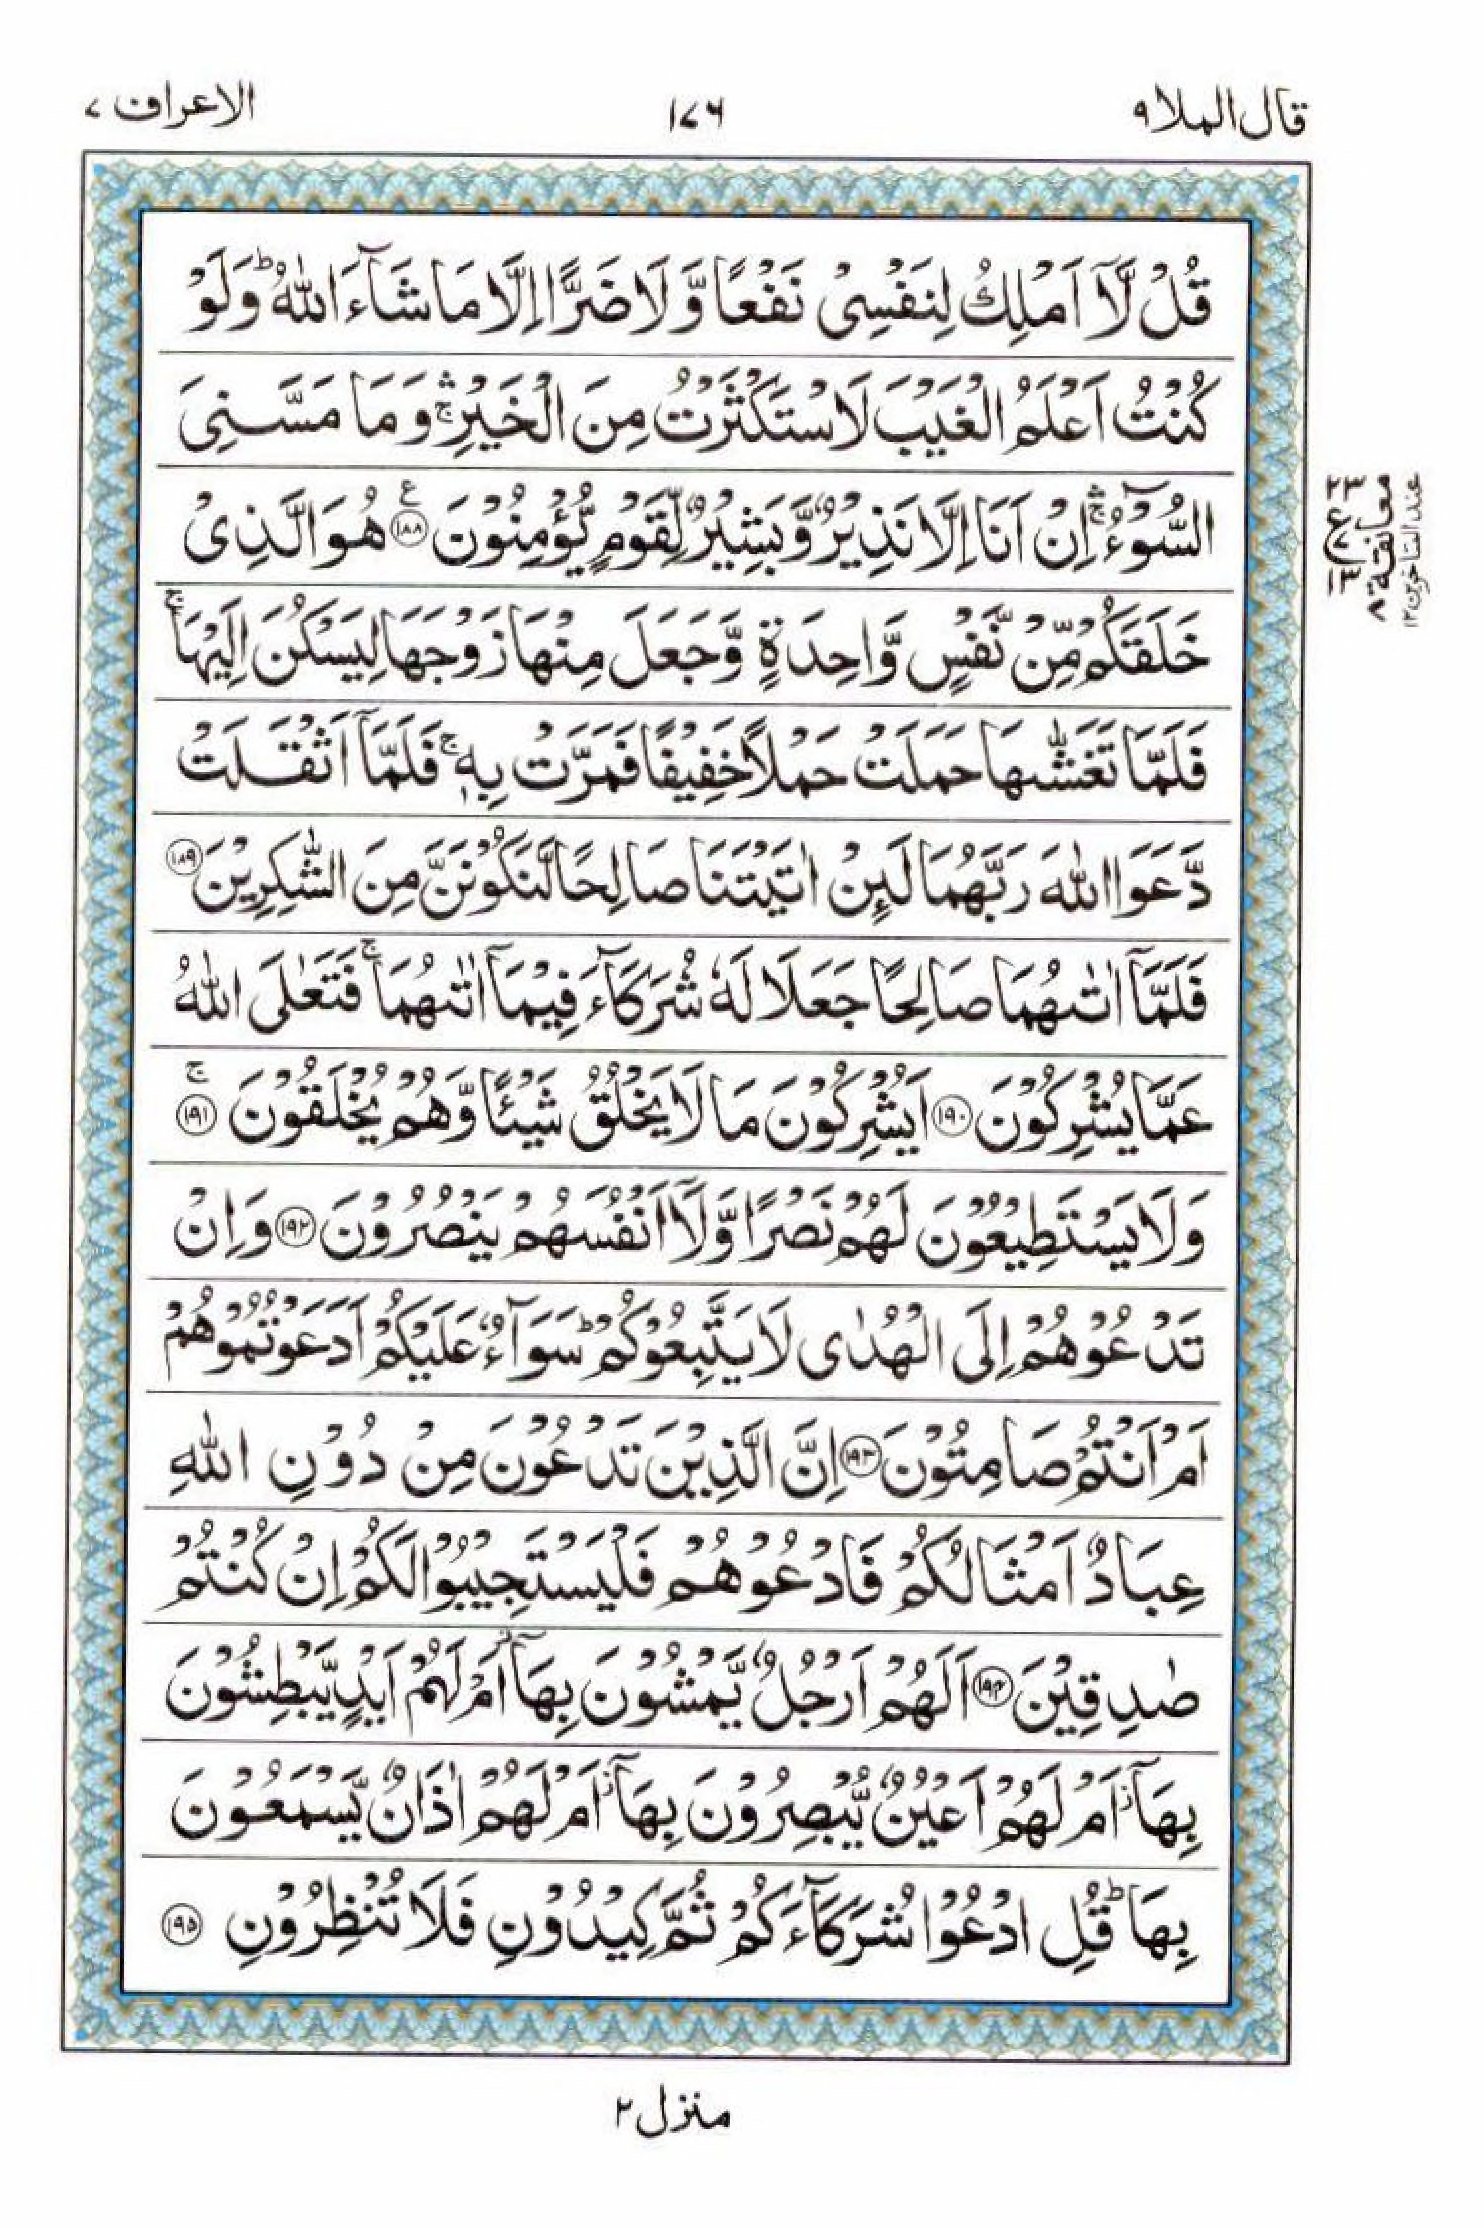 قال الملا ٩
١٧٦
الاعراف ٧
قُلْ لَّاۤ اَمْلِكُ لِنَفْسِیْ نَفْعًا وَّ لَا ضَرًّا اِلَّا مَا شَآءَ اللّٰهُ ؕ وَ لَوْ
كُنْتُ اَعْلَمُ الْغَیْبَ لَاسْتَكْثَرْتُ مِنَ الْخَیْرِ ۛۚ وَ مَا مَسَّنِیَ
السُّوْٓءُ ۛۚ اِنْ اَنَا اِلَّا نَذِیْرٌ وَّ بَشِیْرٌ لِّقَوْمٍ یُّؤْمِنُوْنَ ﴿۱۸۸﴾ ع هُوَ الَّذِیْ
خَلَقَكُمْ مِّنْ نَّفْسٍ وَّاحِدَةٍ وَّ جَعَلَ مِنْهَا زَوْجَهَا لِیَسْكُنَ اِلَیْهَا ۚ
فَلَمَّا تَغَشّٰىهَا حَمَلَتْ حَمْلًا خَفِیْفًا فَمَرَّتْ بِهٖ ۚ فَلَمَّاۤ اَثْقَلَتْ
دَّعَوَا اللّٰهَ رَبَّهُمَا لَىِٕنْ اٰتَیْتَنَا صَالِحًا لَّنَكُوْنَنَّ مِنَ الشّٰكِرِیْنَ ﴿۱۸۹﴾
فَلَمَّاۤ اٰتٰىهُمَا صَالِحًا جَعَلَا لَهٗ شُرَكَآءَ فِیْمَاۤ اٰتٰىهُمَا ۚ فَتَعٰلَی اللّٰهُ
عَمَّا یُشْرِكُوْنَ ﴿۱۹۰﴾ اَیُشْرِكُوْنَ مَا لَا یَخْلُقُ شَیْـًٔا وَّ هُمْ یُخْلَقُوْنَ ﴿۱۹۱﴾ ۚ
وَ لَا یَسْتَطِیْعُوْنَ لَهُمْ نَصْرًا وَّ لَاۤ اَنْفُسَهُمْ یَنْصُرُوْنَ ﴿۱۹۲﴾ وَ اِنْ
تَدْعُوْهُمْ اِلَی الْهُدٰی لَا یَتَّبِعُوْكُمْ ؕ سَوَآءٌ عَلَیْكُمْ اَدَعَوْتُمُوْهُمْ
اَمْ اَنْتُمْ صَامِتُوْنَ ﴿۱۹۳﴾ اِنَّ الَّذِیْنَ تَدْعُوْنَ مِنْ دُوْنِ اللّٰهِ
عِبَادٌ اَمْثَالُكُمْ فَادْعُوْهُمْ فَلْیَسْتَجِیْبُوْا لَكُمْ اِنْ كُنْتُمْ
صٰدِقِیْنَ ﴿۱۹۴﴾ اَلَهُمْ اَرْجُلٌ یَّمْشُوْنَ بِهَاۤ ؗ اَمْ لَهُمْ اَیْدٍ یَّبْطِشُوْنَ
بِهَاۤ ؗ اَمْ لَهُمْ اَعْیُنٌ یُّبْصِرُوْنَ بِهَاۤ ؗ اَمْ لَهُمْ اٰذَانٌ یَّسْمَعُوْنَ
بِهَا ؕ قُلِ ادْعُوْا شُرَكَآءَكُمْ ثُمَّ كِیْدُوْنِ فَلَا تُنْظِرُوْنِ ﴿۱۹۵﴾
٢٣
ع
٧
١٣
معانقة ٨
عند المتاخرین ١٢
منزل ٢